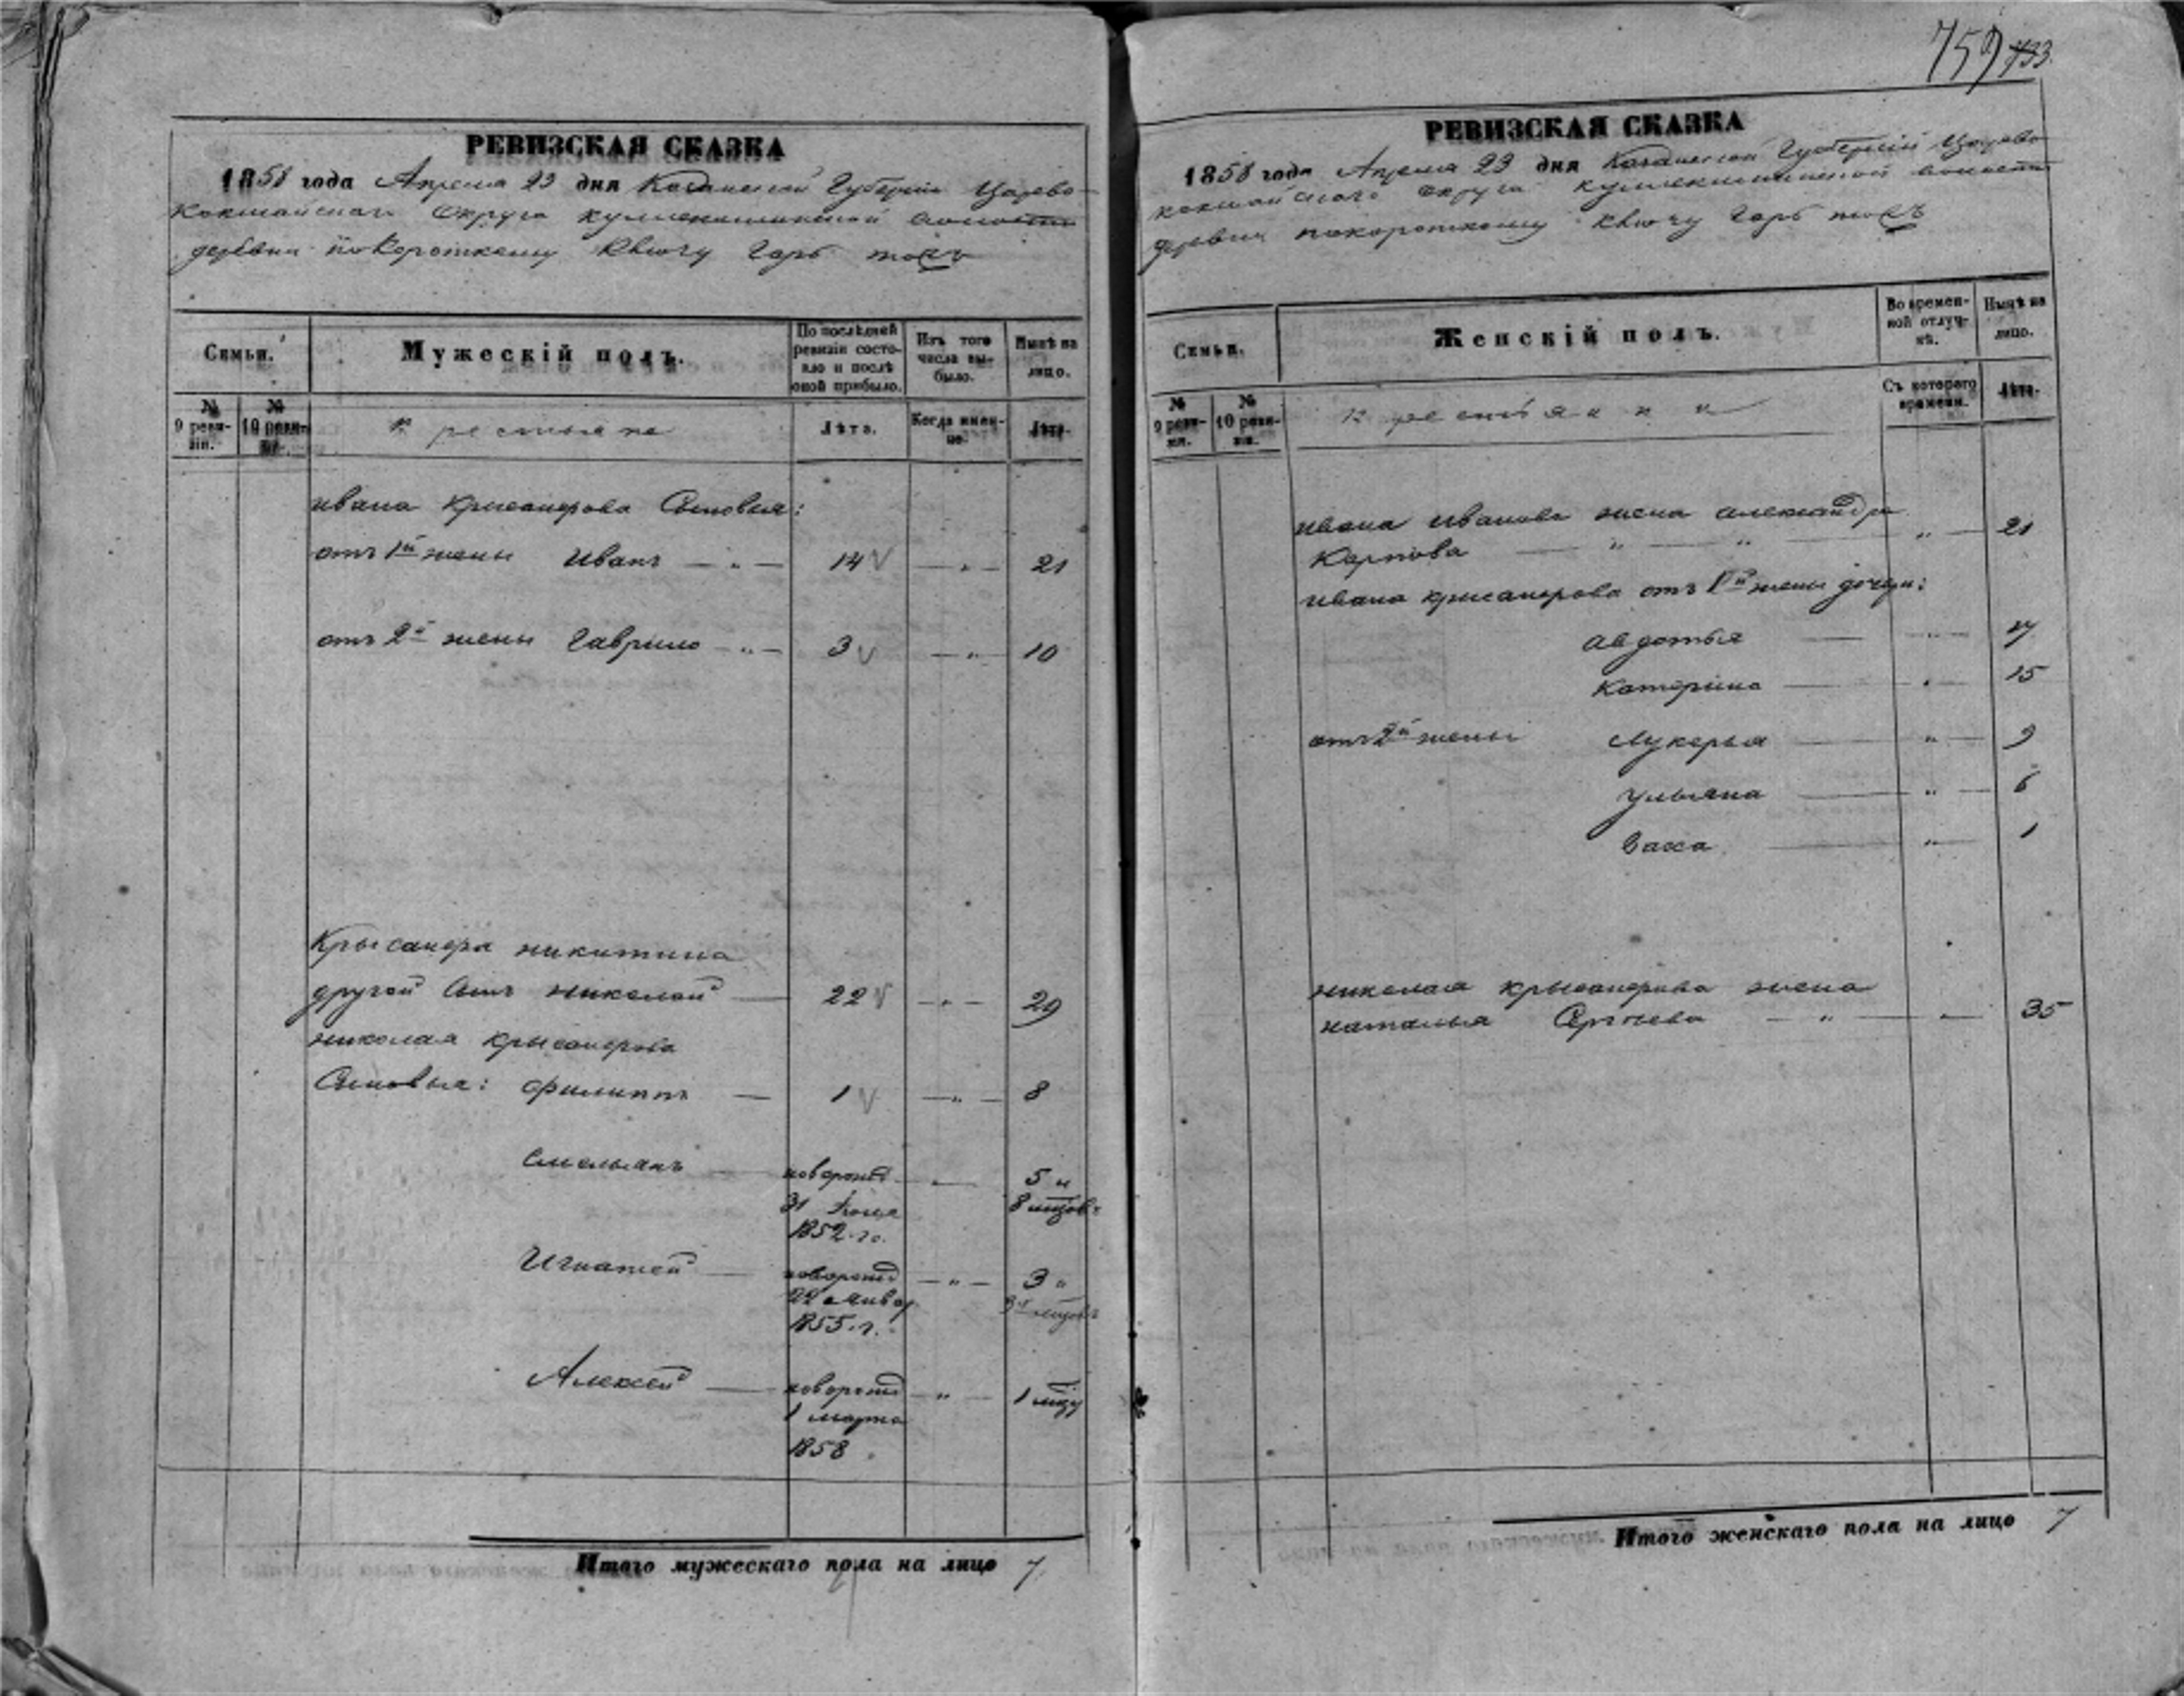 759 733
РЕВИЗСКАЯ СКАЗКА
1858 года Апреля 23 дня Казанской Губернии Царево-
кокшайскаго округа волости
деревни покороткому Ключу тожъ
Семьи.
Мужескій полъ.
По послѣдней ревизіи состо-
яло и послѣ оной прибыло.
Изъ того числа вы-
было.
Нынѣ на лицо.
№ 9 реви-
зіи.
№ 10 реви-
зіи.
крестьяне
Лѣта.
Когда имен-
но.
Лѣта.
ивана крисанфова Сыновья:
отъ 1й жены Иванъ — „ — 14 — „ — 21
отъ 2й жены Гаврило — „ — 3 — „ — 10
Крысанфа никитина
другой Сынъ николай — 22 — „ — 29
николая крысанфова
Сыновья: Филиппъ — 1 — „ — 8
Емельянъ — новорожд — 5 и
31 1852 го. 8 мцовъ
Игнатей — новорожд — „ — 3 и
22 январ 3 мцовъ
1855 г.
Алексей — новорожд — „ — 1 мцу
1 марта
1858
Итого мужескаго пола на лицо 7
РЕВИЗСКАЯ СКАЗКА
1858 года Апреля 23 дня Казанской Губерніи Царево-
кокшайскаго округа волости
деревни покороткому Ключу тожъ
Семьи.
Женскій полъ.
Во времен-
ной отлуч-
кѣ.
Нынѣ на лицо.
№ 9 реви-
зіи.
№ 10 реви-
зіи.
крестьянки
Съ котораго времени.
Лѣта.
ивана иванова жена александра
Карпова — „ — „ — „ — 21
ивана крисанфова отъ 1й жены дочери:
авдотья — „ —
катерина — „ — 15
отъ 2й жены Лукерья — „ — 9
ульяна — „ — 6
Васса — „ — 1
николая крысанфова жена
наталья Сергѣева — „ — 35
Итого женскаго пола на лицо 7